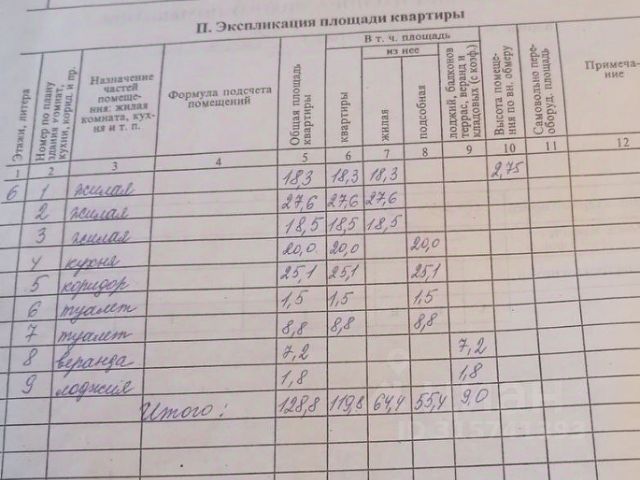 II. Экспликация площади квартиры
Этажи, литера
Номер по плану здания комнат, кухни, корид. и пр.
Назначение частей помеще- ния: жилая комната, кух- ня и т. п.
Формула подсчета помещений
Общая площадь квартиры
В т. ч. площадь
из нее
квартиры
жилая
подсобная
лоджий, балконов террас, веранд и кладовых (с коэф.)
Высота помеще- ния по вн. обмеру
Самовольно пере- оборуд. площадь
Примеча- ние
1 2 3 4 5 6 7 8 9 10 11 12
6 1 жилая 18,3 18,3 18,3 2,75
2 жилая 27,6 27,6 27,6
3 жилая 18,5 18,5 18,5
4 кухня 20,0 20,0 20,0
5 коридор 25,1 25,1 25,1
6 туалет 1,5 1,5 1,5
7 туалет 8,8 8,8 8,8
8 веранда 7,2 7,2
9 лоджия 1,8 1,8
Итого: 128,8 119,8 64,4 55,4 9,0